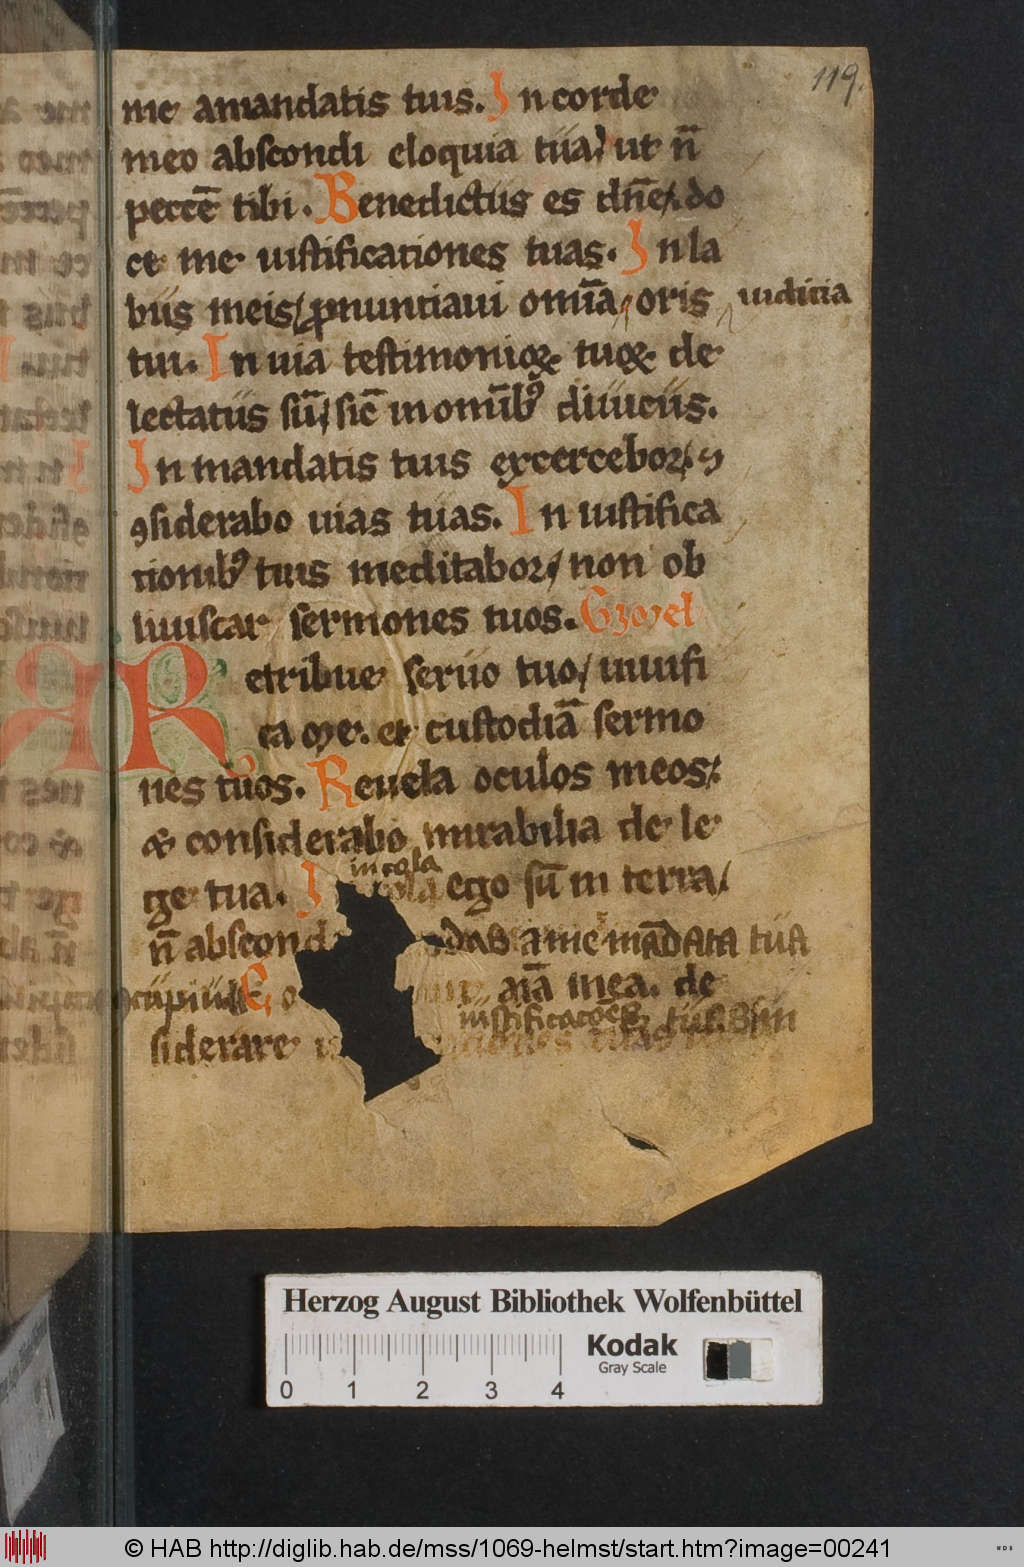 119.
me amandatis tuis. In corde
meo abscondi eloquia tua, ut n̄
peccē tibi. Benedictus es dn̄e, do
ce me iustificationes tuas. In la
biis meis, ꝓnuntiaui om̄ia oris iuditia
tui. In uia testimonioꝝ tuoꝝ de
lectatus sū, sic̄ in om̄ibꝰ diuitiis.
In mandatis tuis excercebor, ⁊
ꝯsiderabo uias tuas. In iustifica
tionibꝰ tuis meditabor, non ob
liuiscar sermones tuos. Gymel
Retribue seruo tuo, uiuifi
ca me. et custodiā sermo
nes tuos. Reuela oculos meos,
& considerabo mirabilia de le
ge tua. I incola ego sū in terra,
n̄ abscond das a me mādata tua
cupiuit aīa mea. de
siderare iustificacōēs tuas in
Herzog August Bibliothek Wolfenbüttel
Kodak
Gray Scale
0 1 2 3 4
© HAB http://diglib.hab.de/mss/1069-helmst/start.htm?image=00241